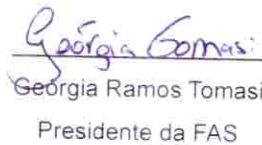 Geórgia Tomasi
Geórgia Ramos Tomasi
Presidente da FAS